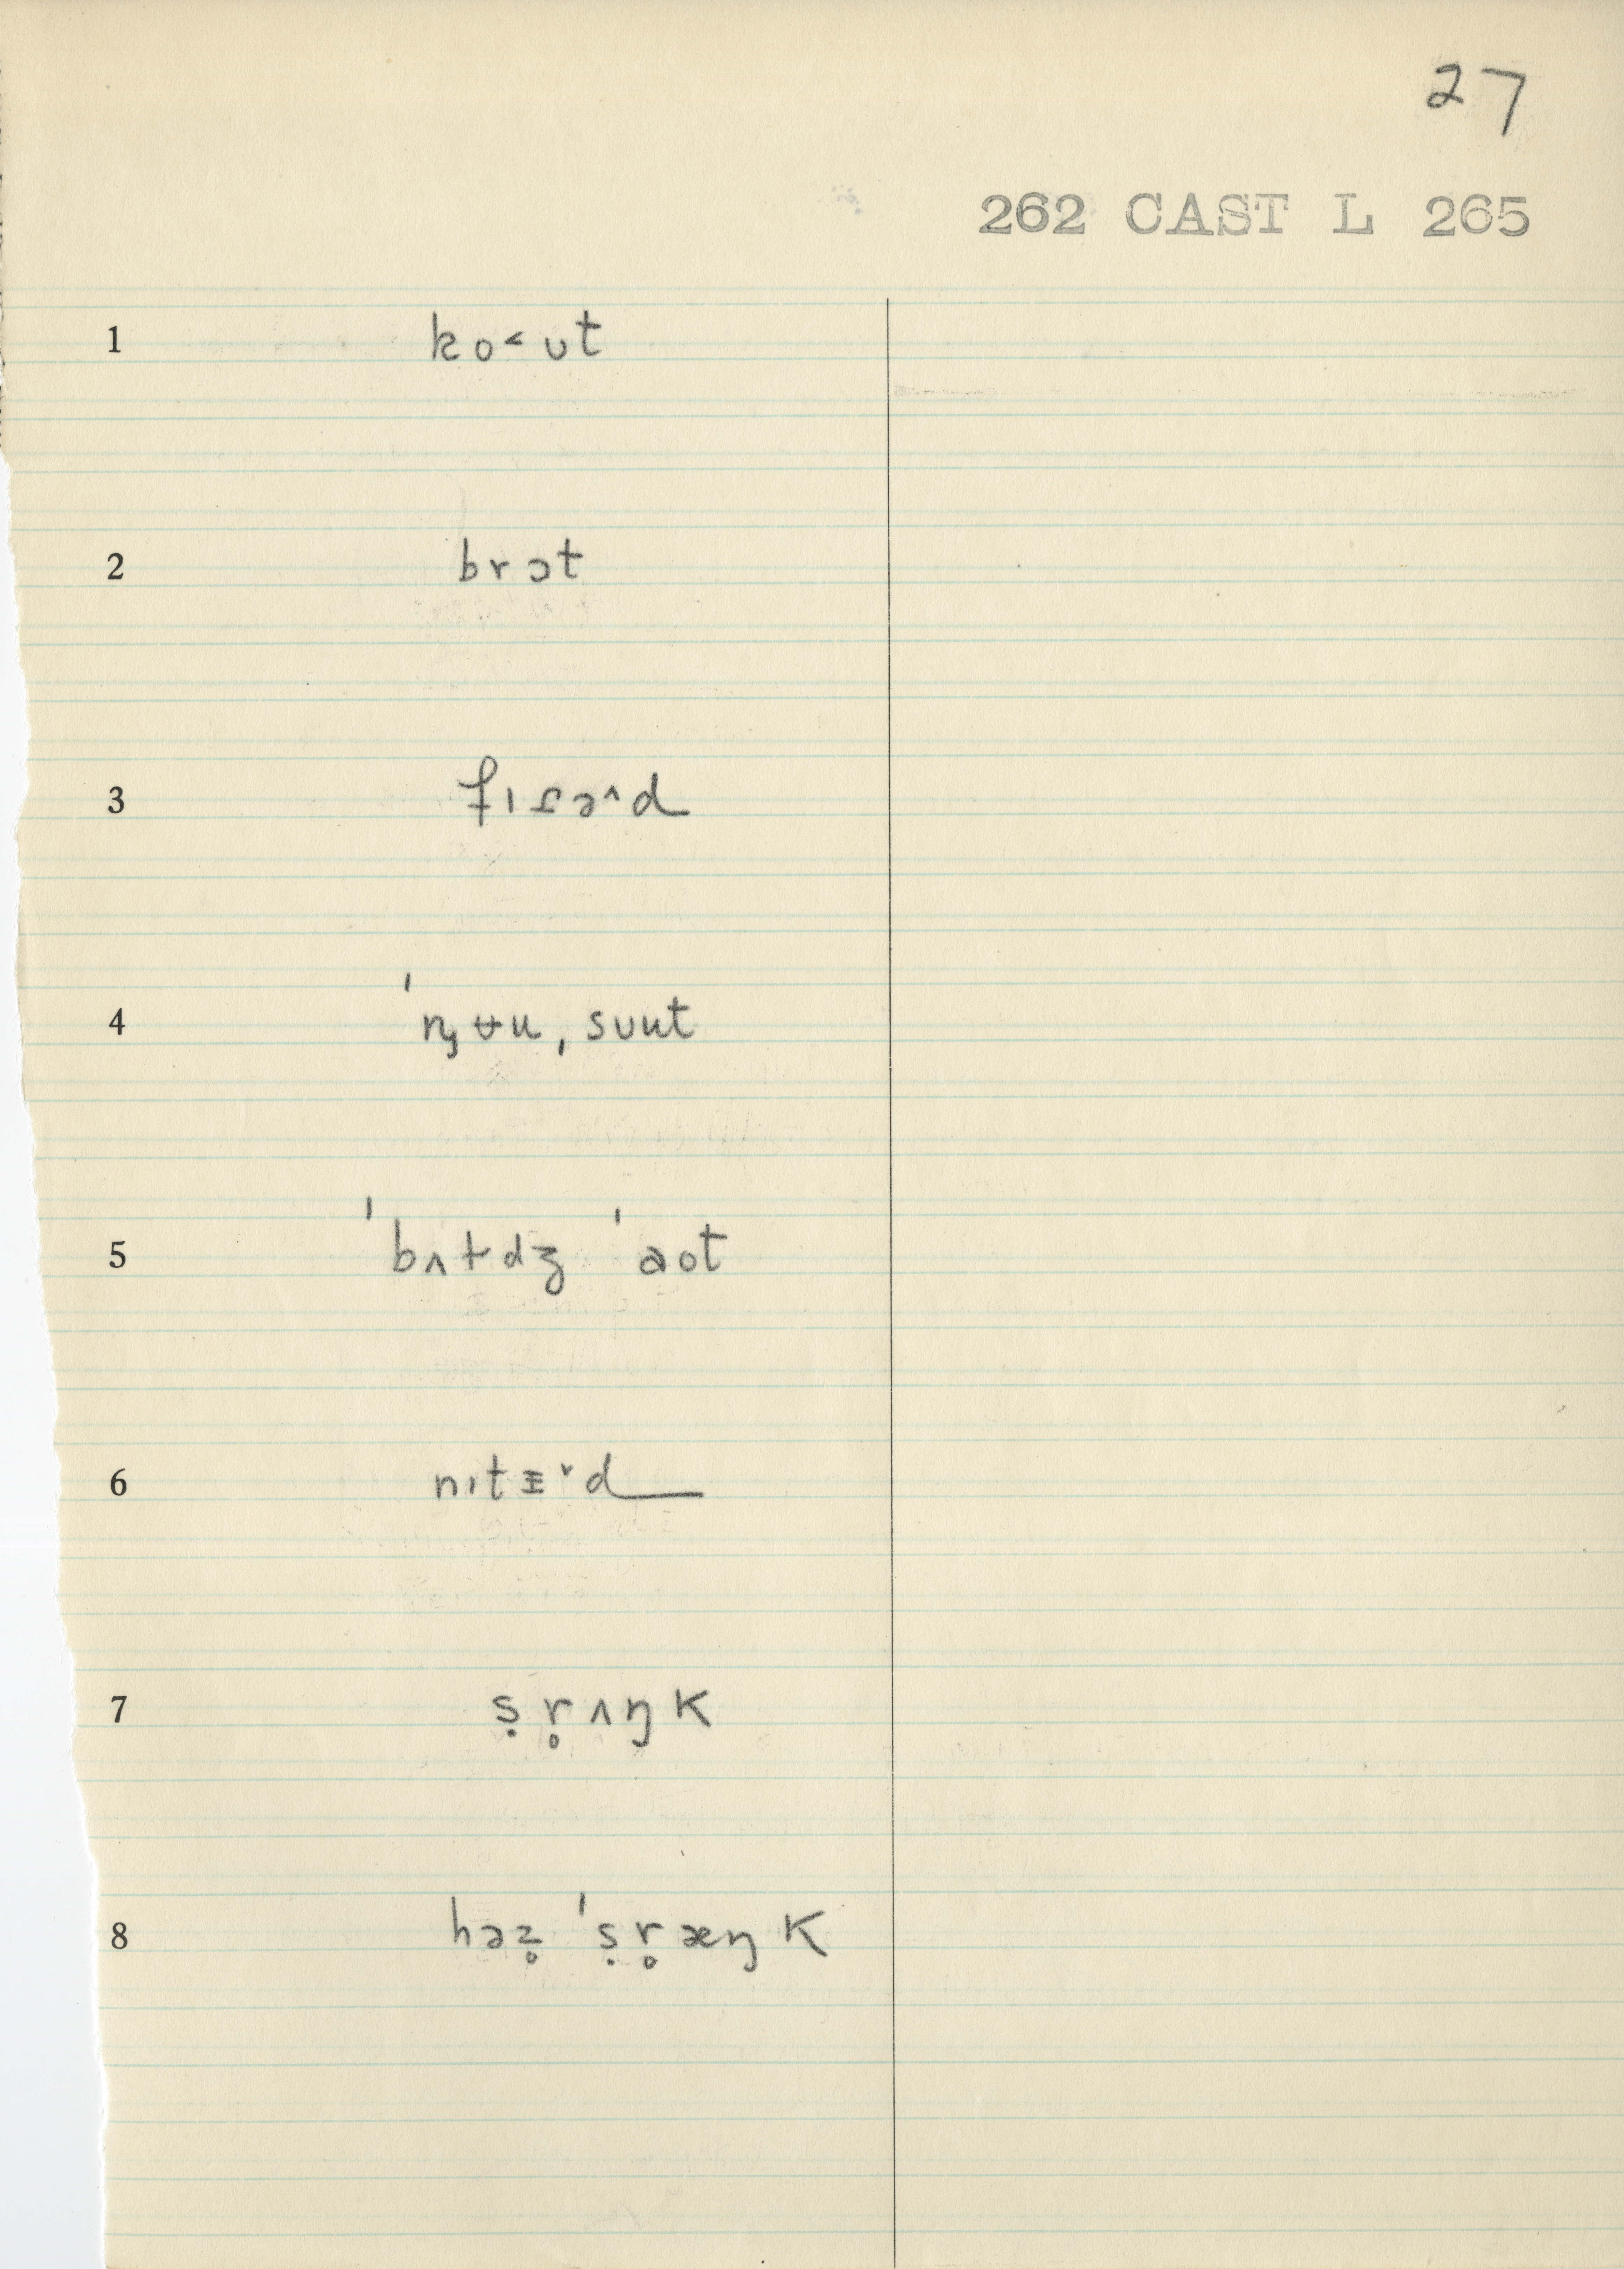 27
262 CAST L 265
1 ko˂ʊt
2 brɔt
3 fɪɾə˄d
4 ˈnᶚʉu, suut
5 ˈbʌɫdʒ ˈaot
6 nɪtᵻ˅d
7 ṣr̥ʌŋk
8 həz̥ ˈṣr̥æŋk